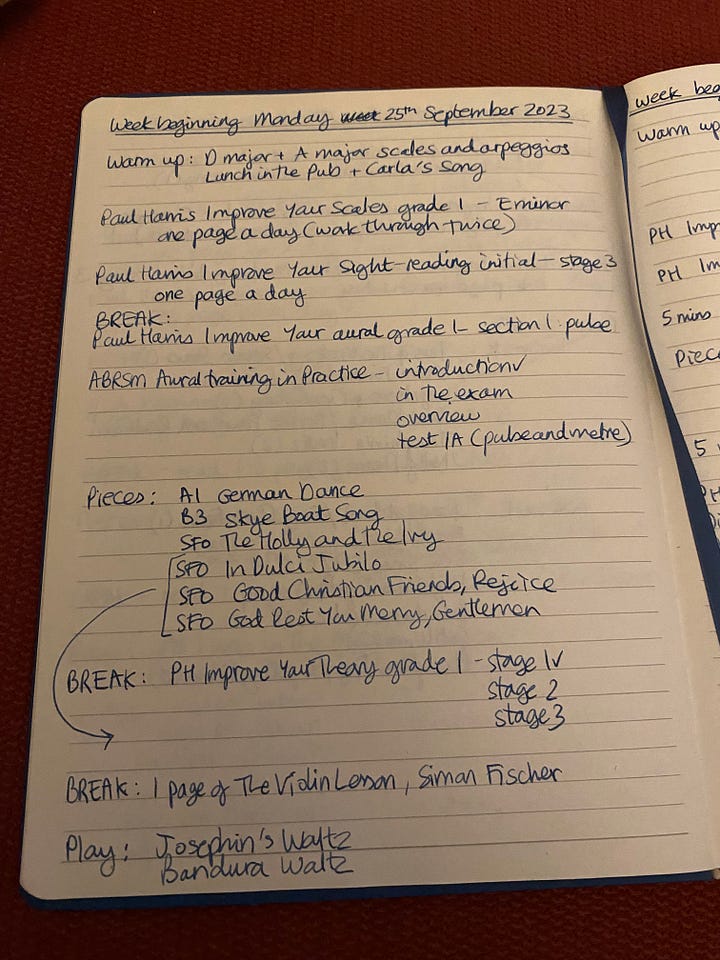 Week beginning Monday week 25th September 2023
Warm up: D major + A major scales and arpeggios
Lunch in the Pub + Carla's Song
Paul Harris Improve Your Scales grade 1 - E minor
one page a day (walk through twice)
Paul Harris Improve Your Sight-reading initial - stage 3
one page a day
BREAK:
Paul Harris Improve Your aural grade 1 - section 1: pulse
ABRSM Aural training in Practice - introduction ✓
in the exam
overview
test 1A (pulse and metre)
Pieces: A1 German Dance
B3 Skye Boat Song
SFO The Holly and the Ivy
SFO In Dulci Jubilo
SFO Good Christian Friends, Rejoice
SFO God Rest You Merry, Gentlemen
BREAK: PH Improve Your Theory grade 1 - stage 1 ✓
stage 2
stage 3
BREAK: 1 page of The Violin Lesson, Simon Fischer
Play: Josephin's Waltz
Bandura Waltz
week beg
Warm up
PH Imp
PH Im
5 mins
Piec
5
PH